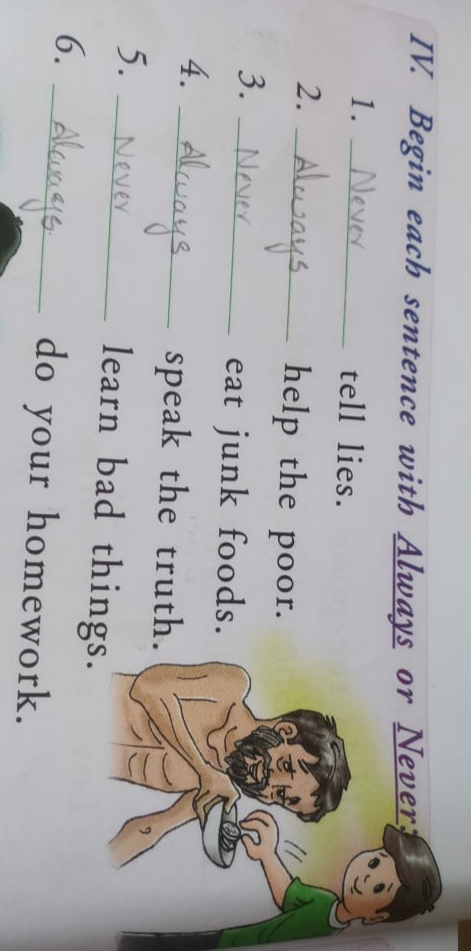 IV. Begin each sentence with Always or Never:
1. Never tell lies.
2. Always help the poor.
3. Never eat junk foods.
4. Always speak the truth.
5. Never learn bad things.
6. Always. do your homework.